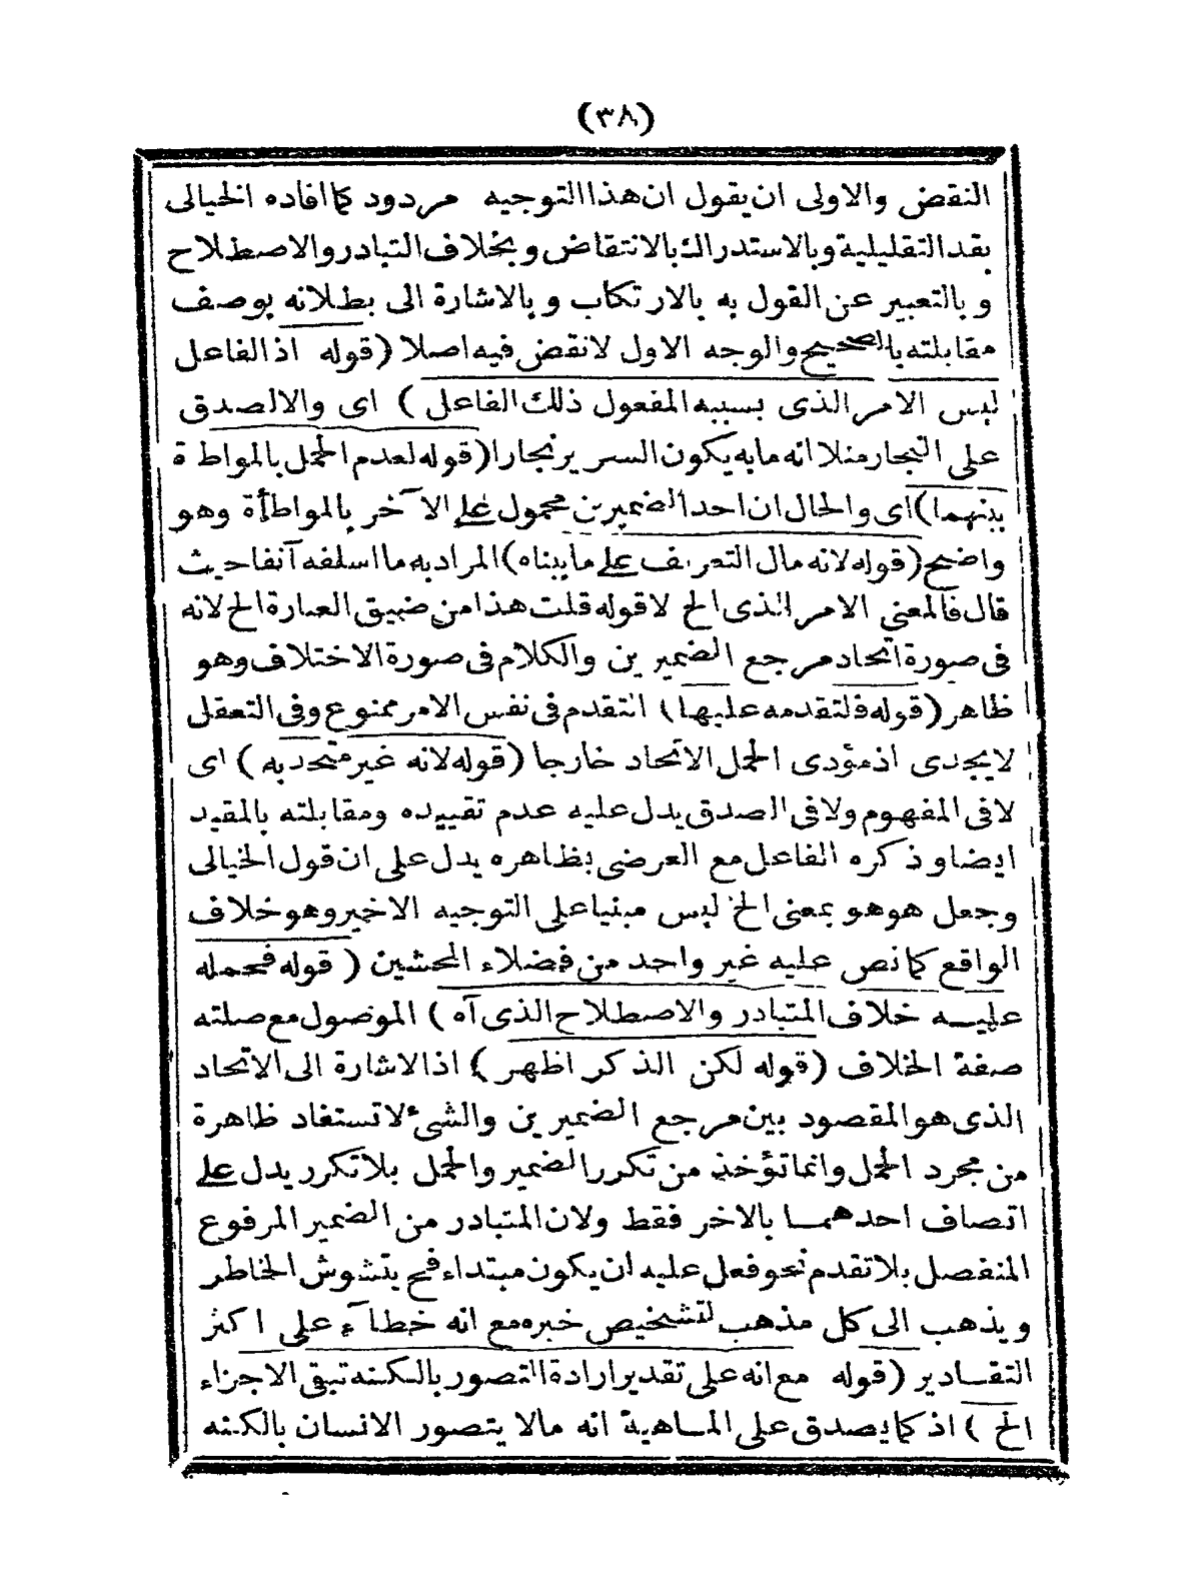 (٣٨)
النقض والاولى ان يقول ان هذا التوجيه مردود كما افاده الخيالى
بقد التقليلية وبالاستدراك بالانتقاض وبخلاف التبادر والاصطلاح
وبالتعبير عن القول به بالارتكاب وبالاشارة الى بطلانه بوصف
مقابلته بالصحيح والوجه الاول لا نقض فيه اصلا (قوله اذ الفاعل
ليس الامر الذى بسببه المفعول ذلك الفاعل) اى والا لصدق
على النجار مثلا انه ما به يكون السرير نجارا (قوله لعدم الحمل بالمواطة
بينهما) اى والحال ان احد الضميرين محمول على الآخر بالمواطأة وهو
واضح (قوله لانه مال التعريف على ما بيناه) المراد به ما اسلفه آنفا حيث
قال فالمعنى الامر الذى الخ لا قوله قلت هذا من ضيق العبارة الخ لانه
فى صورة اتحاد مرجع الضميرين والكلام فى صورة الاختلاف وهو
ظاهر (قوله فلتقدمه عليها) التقدم فى نفس الامر ممنوع وفى التعقل
لا يجدى اذ مؤدى الحمل الاتحاد خارجا (قوله لانه غير متحد به) اى
لا فى المفهوم ولا فى الصدق يدل عليه عدم تقييده ومقابلته بالمقيد
ايضا وذكره الفاعل مع العرضى بظاهره يدل على ان قول الخيالى
وجعل هو هو بمعنى الخ ليس مبنيا على التوجيه الاخير وهو خلاف
الواقع كما نص عليه غير واحد من فضلاء المحشين (قوله فحمله
عليه خلاف المتبادر والاصطلاح الذى آه) الموصول مع صلته
صفة الخلاف (قوله لكن الذكر اظهر) اذ الاشارة الى الاتحاد
الذى هو المقصود بين مرجع الضميرين والشئ لا تستفاد ظاهرة
من مجرد الحمل وانما تؤخذ من تكرر الضمير والحمل بلا تكرر يدل على
اتصاف احدهما بالاخر فقط ولان المتبادر من الضمير المرفوع
المنفصل بلا تقدم نحو فعل عليه ان يكون مبتداء فح يتشوش الخاطر
ويذهب الى كل مذهب لتشخيص خبره مع انه خطآء على اكثر
التقادير (قوله مع انه على تقدير ارادة التصور بالكنه تبقى الاجزاء
الخ) اذ كما يصدق على الماهية انه ما لا يتصور الانسان بالكنه